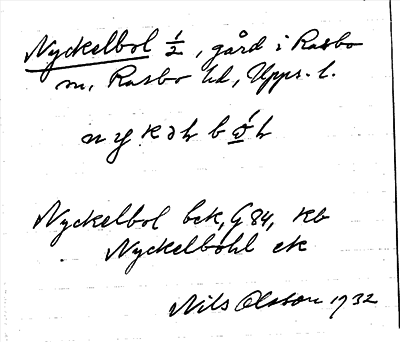 Nyckelbol 1/2, gård i Rasbo
sn, Rasbo hd, Upps. l.
Nyckelbol bck, G 84, Kb
Nyckelbohl ek
Nils Olsson 1932